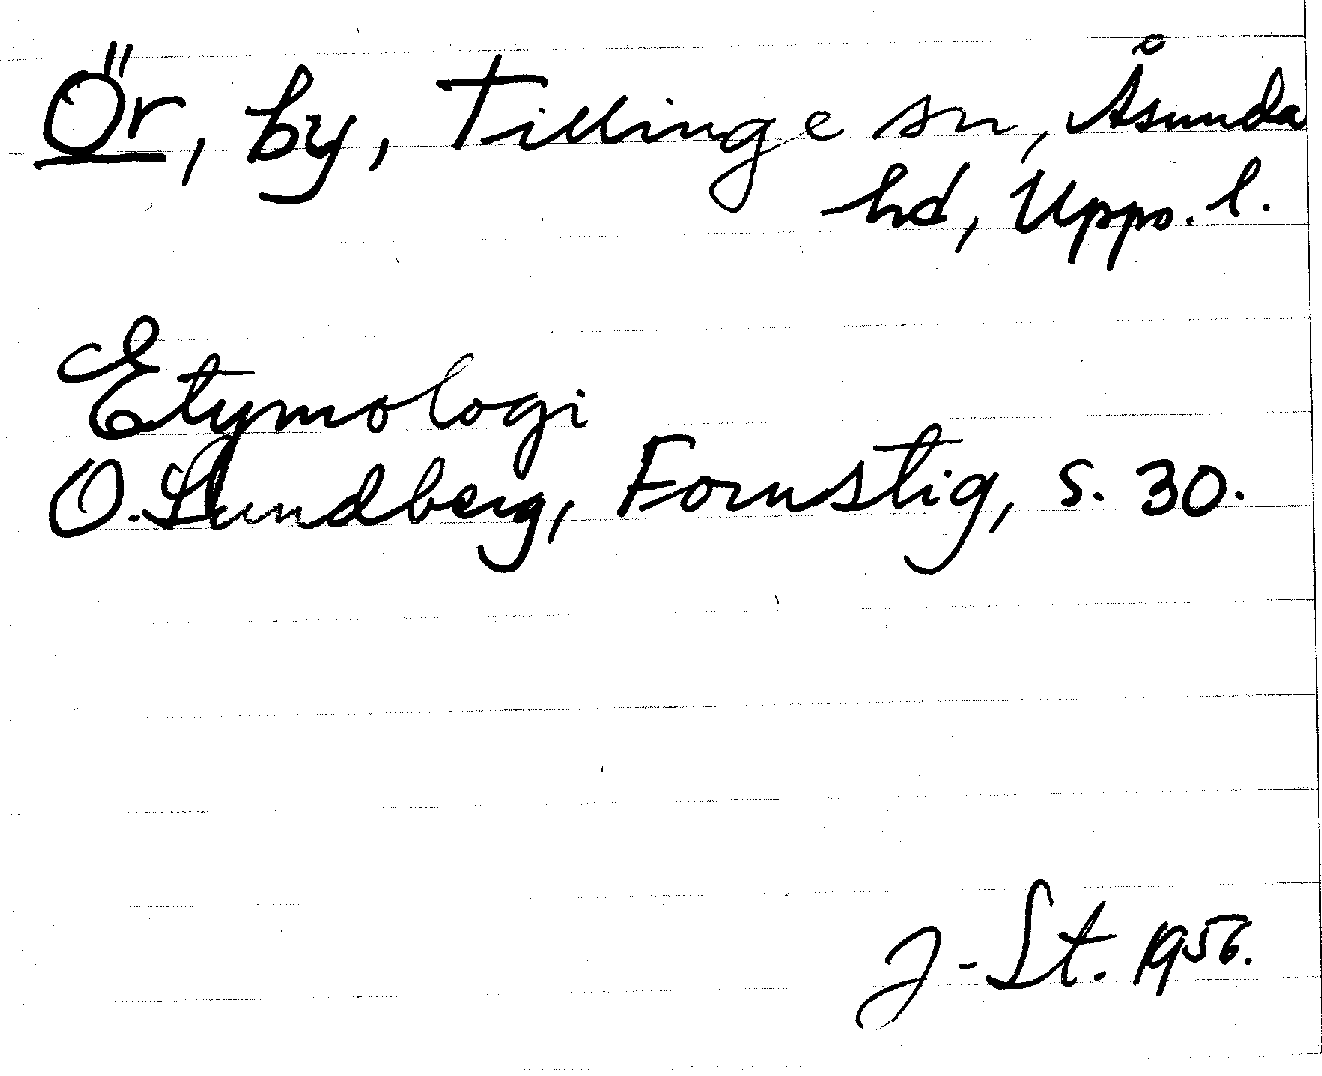 Ör, by, Tillinge sn, Åsunda
hd, Upps. l.
Etymologi
O. Lundberg, Fornstig, s. 30.
J-St. 1956.